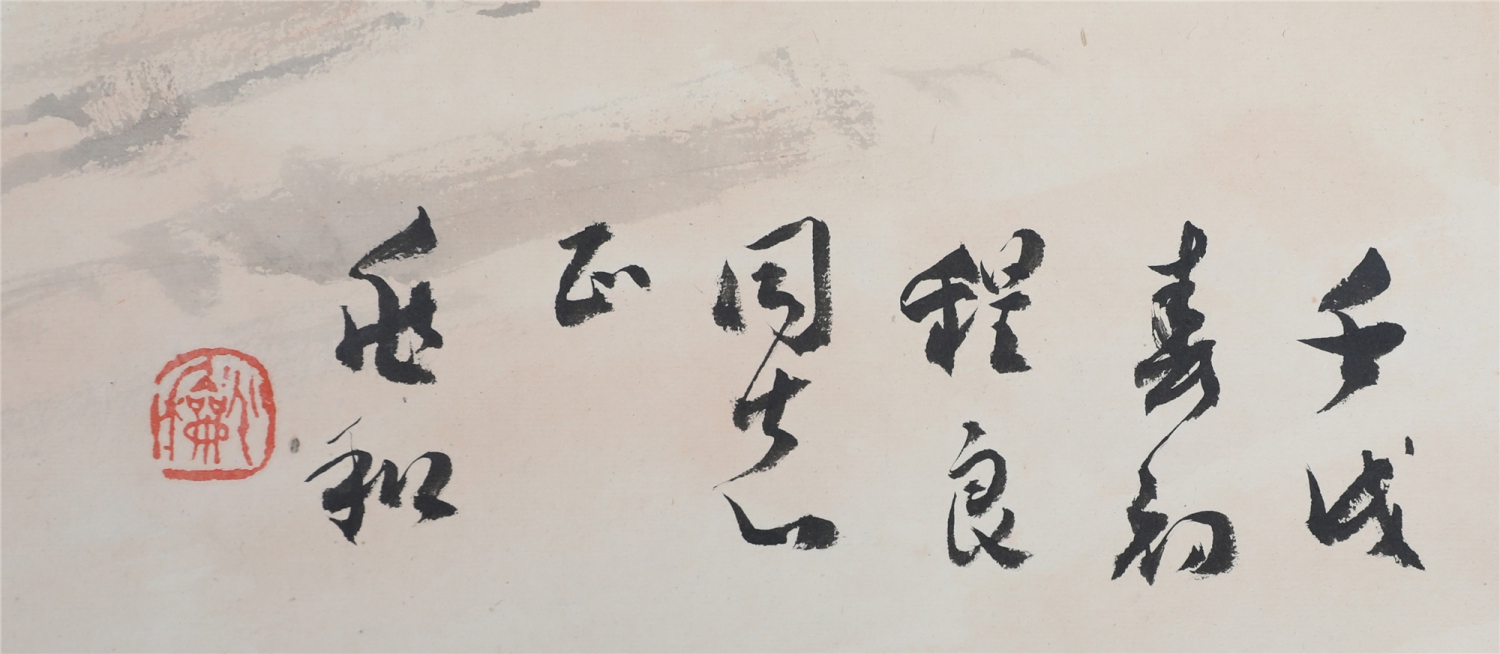 壬戌
春初
程良
同志
正
和